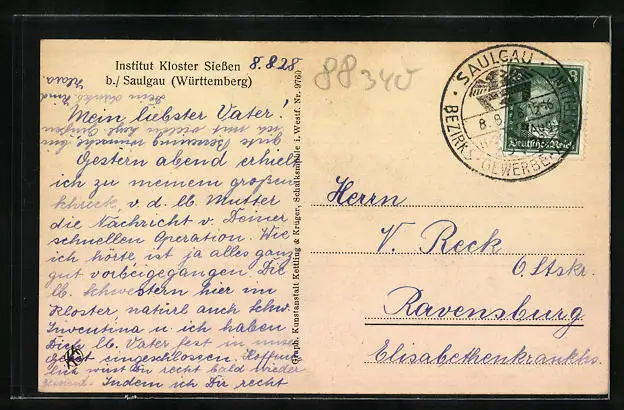 Institut Kloster Sießen
b./ Saulgau (Württemberg)
8.8.28
88340
Mein liebster Vater!
Gestern abend erhielt
ich zu meinem großen
Schreck, v. d. lb. Mutter
die Nachricht v. Deiner
schnellen Operation. Wie
ich hörte, ist ja alles ganz
gut vorbeigegangen. Die
lb. Schwestern hier im
Kloster, natürl. auch Schw.
Inventina u. ich haben
Dich lb. Vater fest in unser
Gebet eingeschlossen. Hoffent-
lich wirst Du recht bald wieder
Indem ich Dir recht
gute Besserung wünsche bin
ich mit vielen
Dein dankb. Kind
Klara.
Graph. Kunstanstalt Kettling & Krüger, Schalksmühle i. Westf. Nr. 9760
SAULGAU
BEZIRKS-GEWERBE
8.8.
8
Deutsches Reich
Herrn
V. Reck
O.Stskr.
Ravensburg
Elisabethenkrankhs.